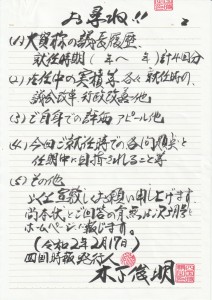 お尋ね!!
(1)大賀称の議長履歴
就任時期(年〜年)計4回分
(2)在任中の実績等各々就任時の、
議会改革、行政改善他
(3)ご自身での辞悔アピール他
(4)今回ご就任時での各1問実と
任期中に目指されること等
(5)その他
以上宜敷しくお願い申し上げます。
尚本状とご回答の有無は次月号と
ホームページに報じます。
(令和2年2月17日)
四国時報発行人
木下俊明